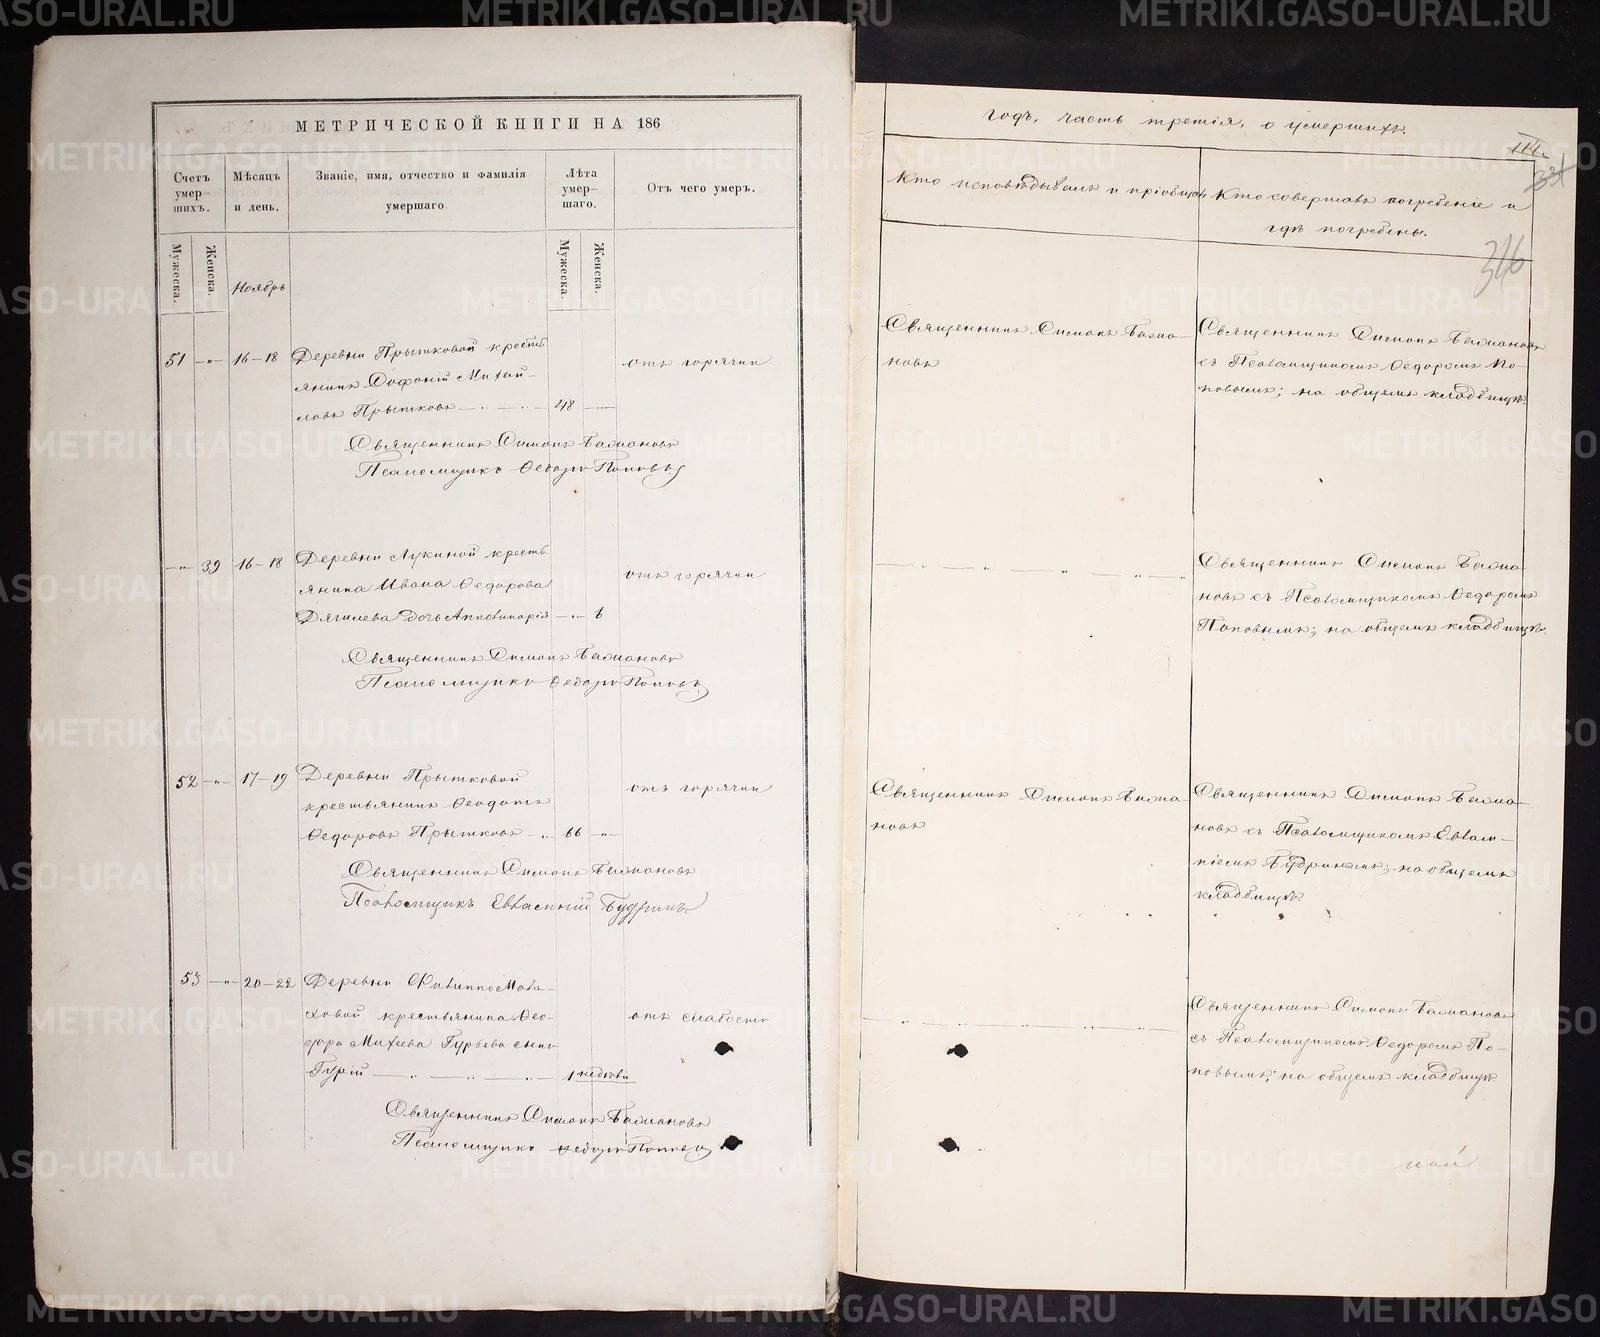 МЕТРИЧЕСКОЙ КНИГИ НА 186
Счетъ умер-шихъ.
Мѣсяцъ и день.
Званіе, имя, отчество и фамилія умершаго
Лѣта умер-шаго.
Отъ чего умеръ.
Мужеска.
Женска.
Ноябрь
Мужеска.
Женска.
51 —„— 16–18 Деревни Прытковой кресть-
янинъ Софоній Михай-
ловъ Прытковъ — „ — „ — 48 —„— отъ горячки
Священникъ Симонъ Баманов
Псаломщикъ Ѳедоръ Поповъ
—„— 39 16–18 Деревни Лукиной кресть-
янина Ивана Ѳедорова
Дягилева дочь Апполинарія —„— 6 отъ горячки
Священникъ Симонъ Баманов
Псаломщикъ Ѳедоръ Поповъ
52 —„— 17–19 Деревни Прытковой
крестьянинъ Ѳеодотъ
Ѳедоровъ Прытковъ —„ 66 —„— отъ горячки
Священникъ Симонъ Баманов
Псаломщикъ Евлампій Будринъ.
53 —„— 20–22 Деревни Филиппо Мала-
ховой крестьянина Ѳео-
дора Михеева Гурьева сынъ
Гурій — „ — „ — „ — 1 недѣли отъ слабости
Священникъ Симонъ Баманов
Псаломщикъ Ѳедоръ Поповъ
годъ, часть третія, о умершихъ.
114.
331
316
Кто исповѣдывалъ и пріобщалъ
Кто совершалъ погребеніе и
гдѣ погребены.
Священникъ Симонъ Бама-
новъ
Священникъ Симонъ Бамановъ
съ Псаломщикомъ Ѳедоромъ По-
повымъ; на общемъ кладбищѣ.
Священникъ Симонъ Бама-
новъ съ Псаломщикомъ Ѳедоромъ
Поповымъ; на общемъ кладбищѣ.
Священникъ Симонъ Бама-
новъ
Священникъ Симонъ Бама-
новъ съ Псаломщикомъ Евлам-
піемъ Будринымъ; на общемъ
кладбищѣ.
Священникъ Симонъ Бамановъ
съ Псаломщикомъ Ѳедоромъ По-
повымъ; на общемъ кладбищѣ.
METRIKI.GASO-URAL.RU